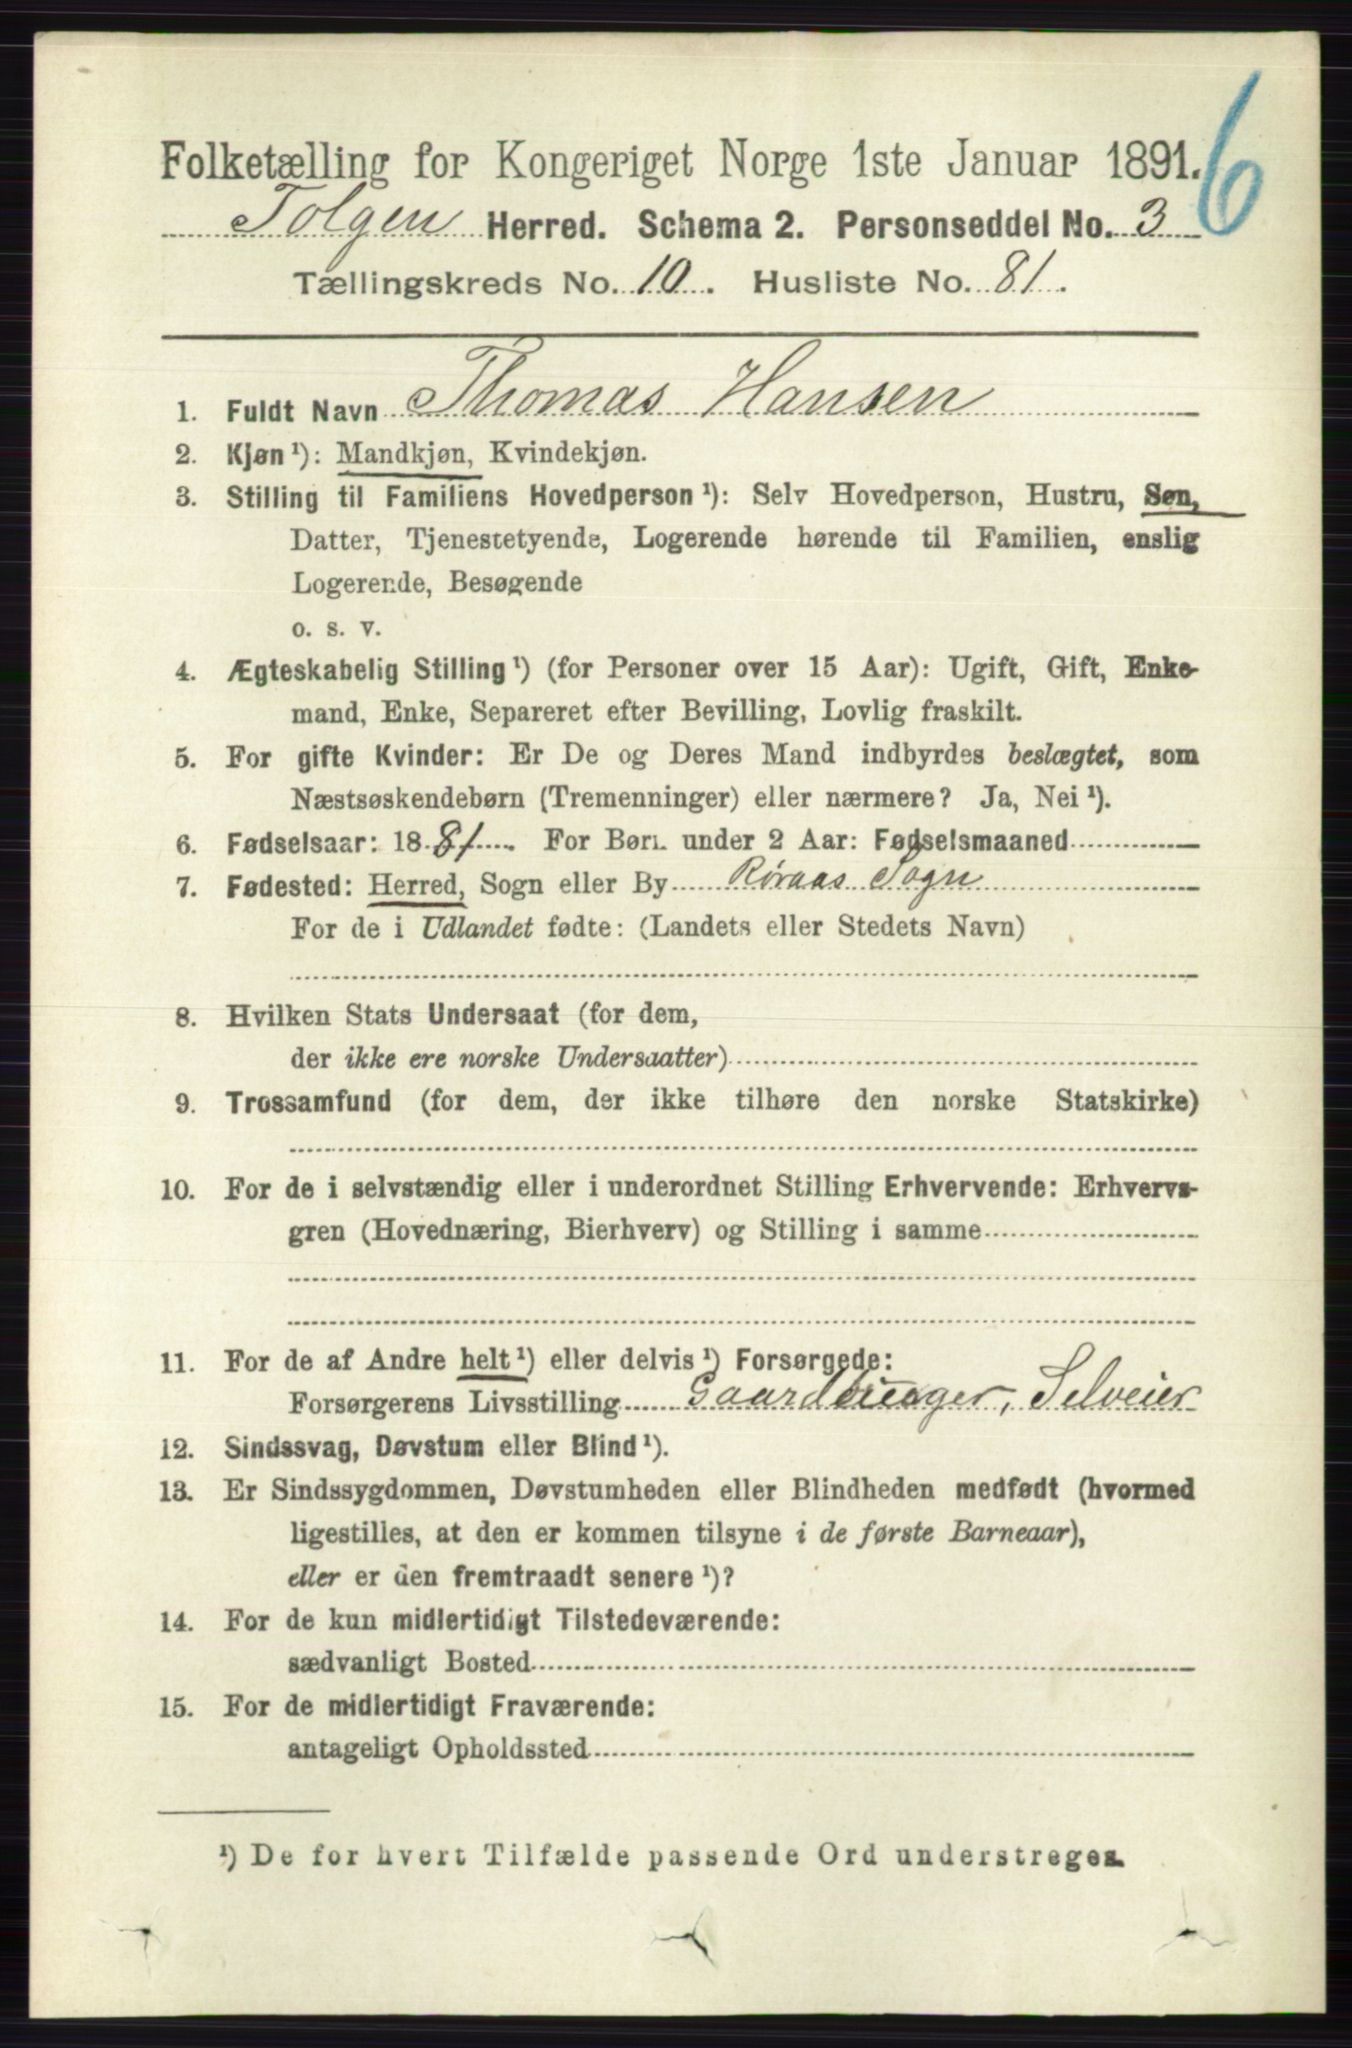 6
Folketælling for Kongeriget Norge 1ste Januar 1891.
Tolgen Herred. Schema 2. Personseddel No. 3
Tællingskreds No. 10. Husliste No. 81.
1. Fuldt Navn Thomas Hansen
2. Kjøn ¹): Mandkjøn, Kvindekjøn.
3. Stilling til Familiens Hovedperson ¹): Selv Hovedperson, Hustru, Søn,
Datter, Tjenestetyende, Logerende hørende til Familien, enslig
Logerende, Besøgende
o. s. v.
4. Ægteskabelig Stilling ¹) (for Personer over 15 Aar): Ugift, Gift, Enke-
mand, Enke, Separeret efter Bevilling, Lovlig fraskilt.
5. For gifte Kvinder: Er De og Deres Mand indbyrdes beslægtet, som
Næstsøskendebørn (Tremenninger) eller nærmere? Ja, Nei ¹).
6. Fødselsaar: 1881. For Børn under 2 Aar: Fødselsmaaned
7. Fødested: Herred, Sogn eller By Røraas Sogn
For de i Udlandet fødte: (Landets eller Stedets Navn)
8. Hvilken Stats Undersaat (for dem,
der ikke ere norske Undersaatter)
9. Trossamfund (for dem, der ikke tilhøre den norske Statskirke)
10. For de i selvstændig eller i underordnet Stilling Erhvervende: Erhvervs-
gren (Hovednæring, Bierhverv) og Stilling i samme
11. For de af Andre helt ¹) eller delvis ¹) Forsørgede:
Forsørgerens Livsstilling Gaardbruger, Selveier
12. Sindssvag, Døvstum eller Blind ¹).
13. Er Sindssygdommen, Døvstumheden eller Blindheden medfødt (hvormed
ligestilles, at den er kommen tilsyne i de første Barneaar),
eller er den fremtraadt senere ¹)?
14. For de kun midlertidigt Tilstedeværende:
sædvanligt Bosted
15. For de midlertidigt Fraværende:
antageligt Opholdssted
¹) De for hvert Tilfælde passende Ord understreges.